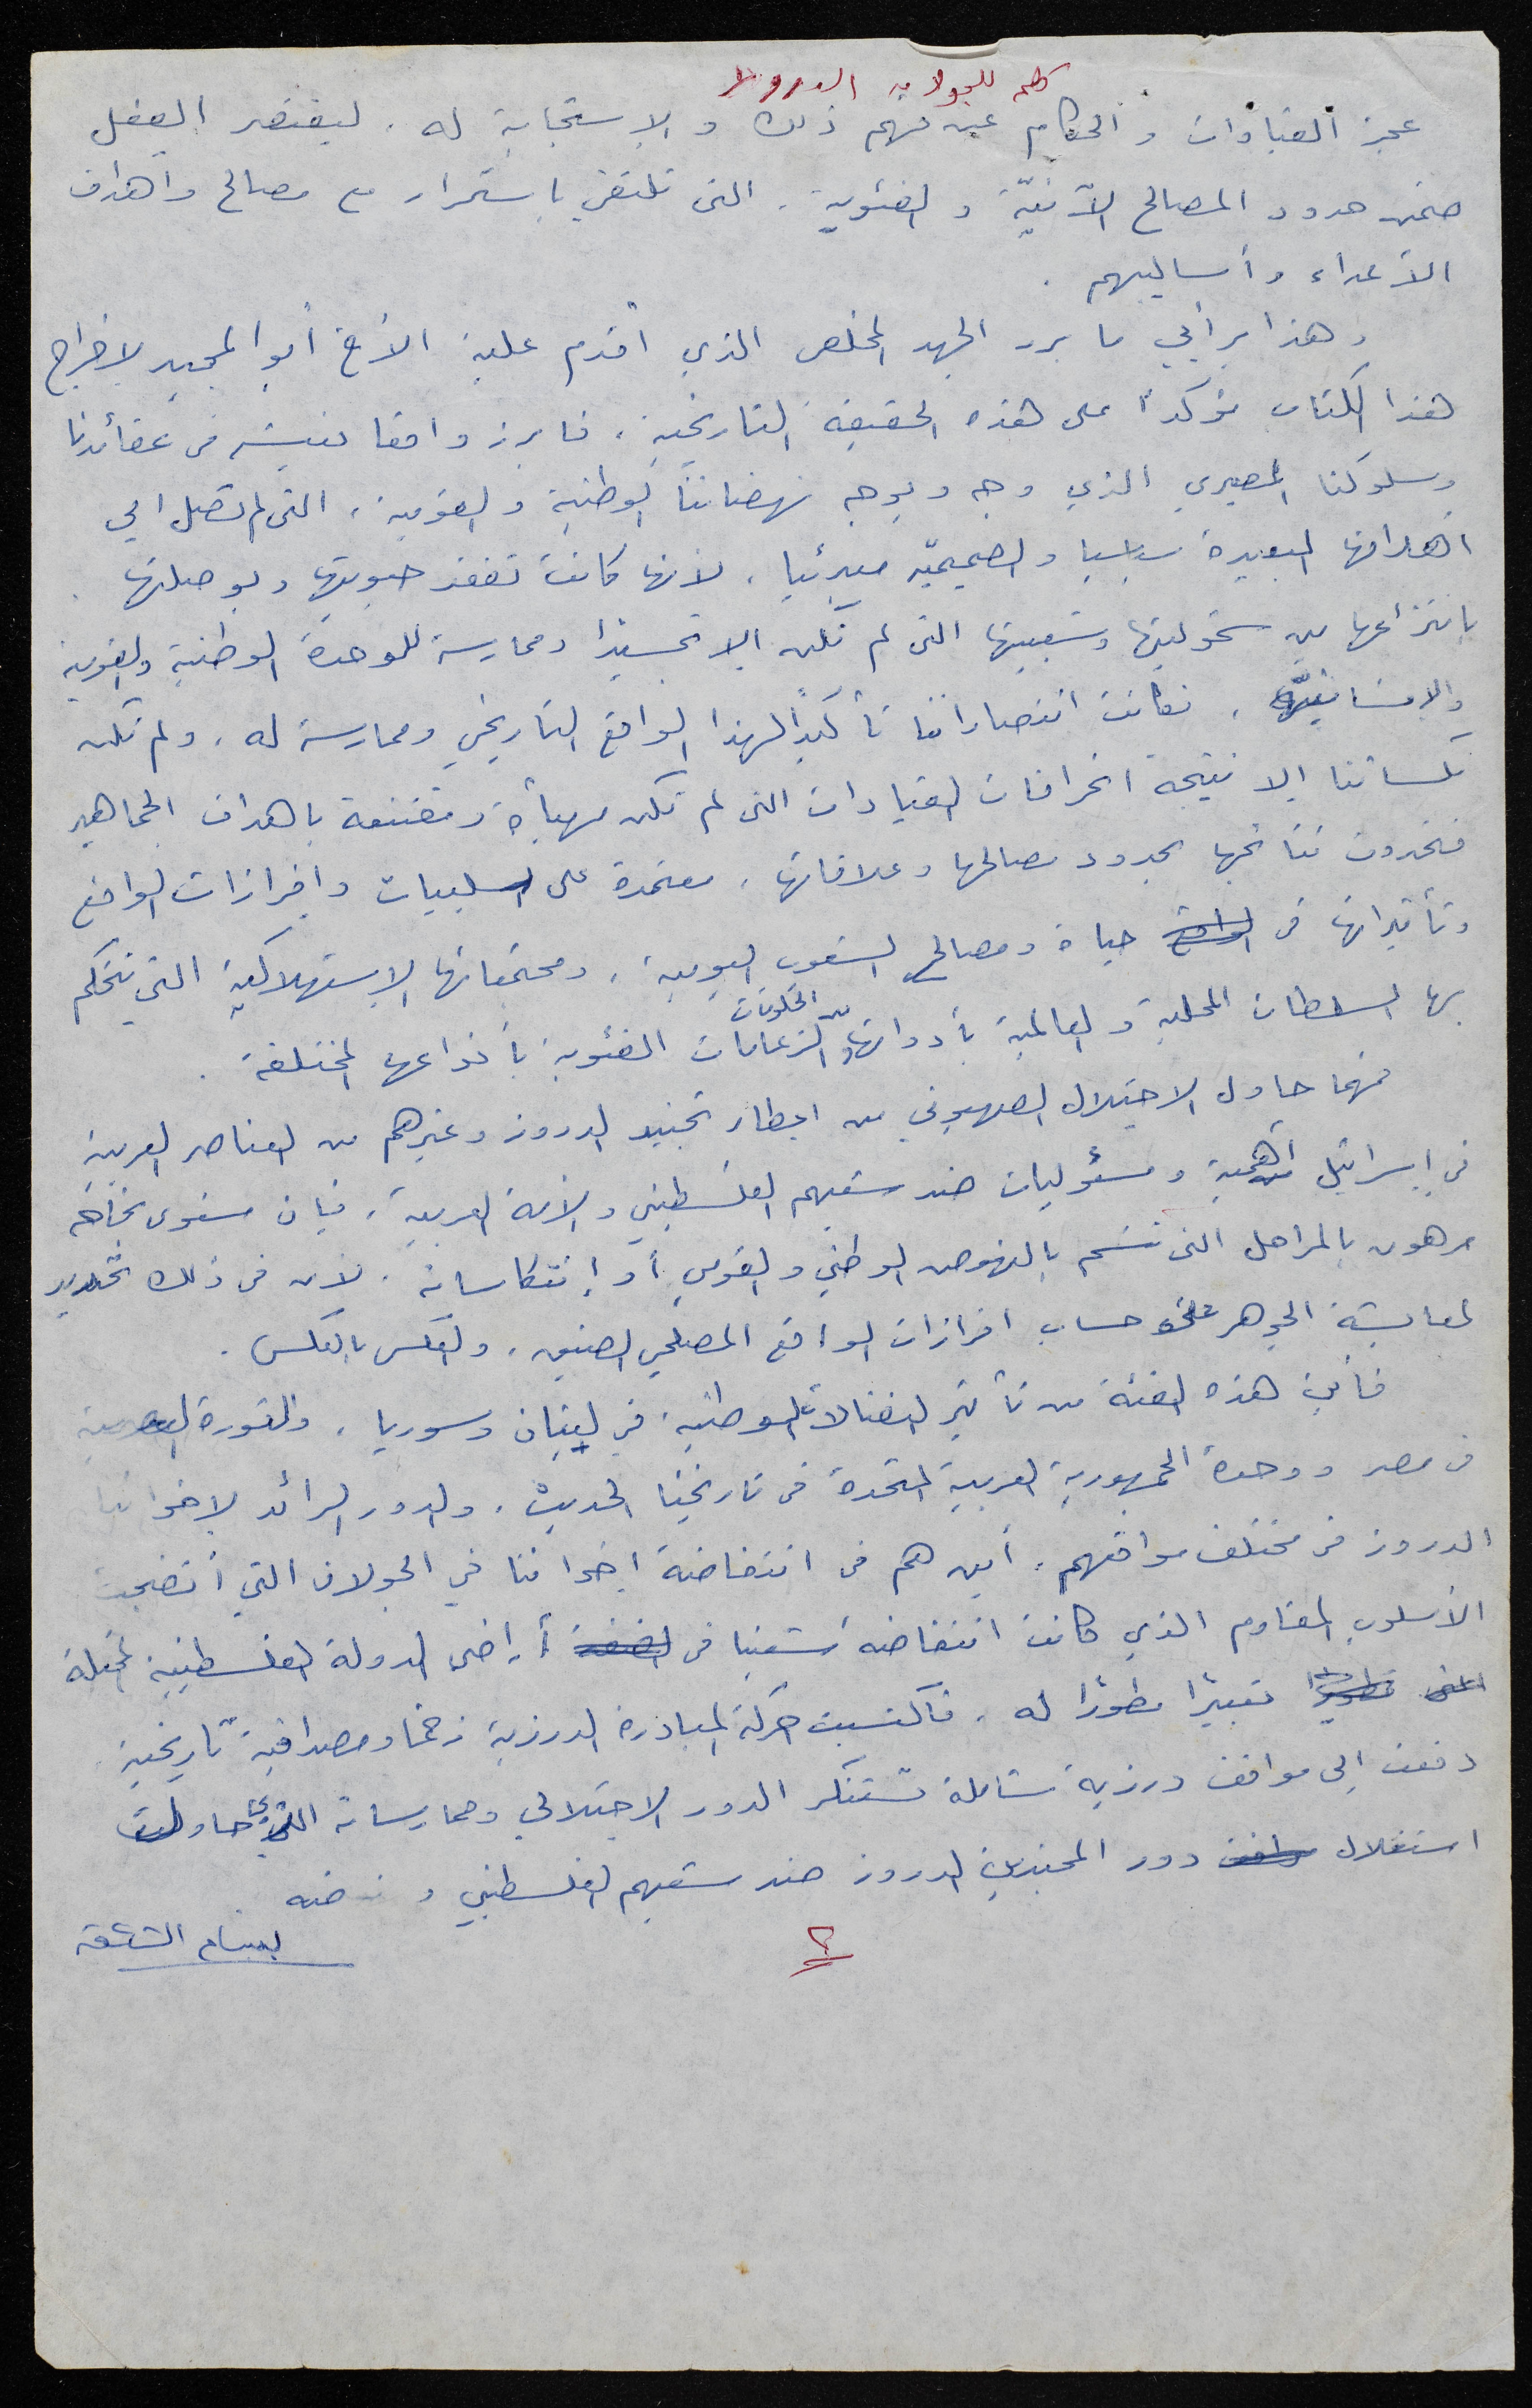 كلمة للجولان الدروز
عجز القيادات والحكام عن فهم ذلك والاستجابة له. ليقتصر العقل
ضمن حدود المصالح الآنيّة والفئوية. التي تلتقي باستمرار مع مصالح واهداف
الأعداء وأساليبهم.
وهذا برأيي ما برر الجهد المخلص الذي أقدم عليه الأخ أبو المجيد لإخراج
هذا الكتاب مؤكداً على هذه الحقيقة التاريخية. فابرز واقعا نعيشه في عقائدنا
وسلوكنا المصيري الذي وجه ويوجه نهضاتنا الوطنية والقومية. التي لم تصل الى
اهدافها البعيدة سياسيا والصميميّه مبدئيا. لأنها كانت تفقد حيويتها وبوصلتها
بانتزاعها من شموليتها وشعبيتها التي لم تكن إلا تجسيدا وممارسة للوحدة الوطنية والقومية
والإنسانيّة. فكانت انتصاراتنا تأكيداً لهذا الواقع التاريخي وممارسة له. ولم تكن
نكساتنا إلا نتيجة انحرافات القيادات التي لم تكن مهيأة ومقتنعة باهداف الجماهير
فتحددت نتائجها بحدود مصالحها وعلاقاتها. معتمدة على السلبيات وإفرازات الواقع
وتأثيراتها في الواقع حياة ومصالح الشعوب اليومية. ومجتمعاتها الاستهلاكية التي تتحكم
بها السلطات المحلية والعالمية بأدواتها من الحكومات والزعامات الفئوية بأنواعها المختلفة.
فمهما حاول الاحتلال الصهيوني من اعطاء تجنيد الدروز وغيرهم من العناصر العربية
في إسرائيل أهمية ومسؤوليات ضد شعبهم الفلسطيني والأمة العربية. فإن مستوى نجاحه
مرهون بالمراحل التي تتسم بالنهوض الوطني والقومي أو إنتكاساته. لأن في ذلك تحديد
لمعايشة الجوهر على حساب افرازات الواقع المصلحي الضيق. والعكس بالعكس.
فأين هذه الفئة من تأثير النضالات الوطنية في لبنان وسوريا. والثورة العربية
في مصر ووحدة الجمهورية العربية المتحدة في تاريخنا الحديث. والدور الرائد لاخواننا
الدروز في مختلف مواقعهم. أين هم في انتفاضة اخواننا في الجولان التي أنضجت
الأسلوب المقاوم الذي كانت انتفاضة شعبنا في الضفة أراضي الدولة الفلسطينية المحتلة
تعبيرًا مطورًا له. فاكتسبت حركة المبادرة الدرزية زخما ومصداقية تاريخية
دفعت إلى مواقف درزية شاملة تستنكر الدور الاحتلالي وممارساته التي حاولت
استغلال دور المجندين الدروز ضد شعبهم الفلسطيني و
بسام الشكعة
٢